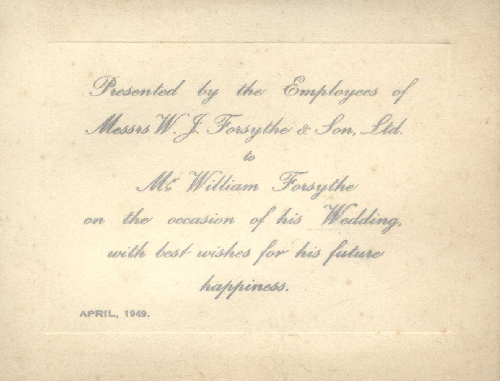 Presented by the Employees of
Messrs W. J. Forsythe & Son, Ltd.
to
Mr William Forsythe
on the occasion of his Wedding,
with best wishes for his future
happiness.
APRIL, 1949.